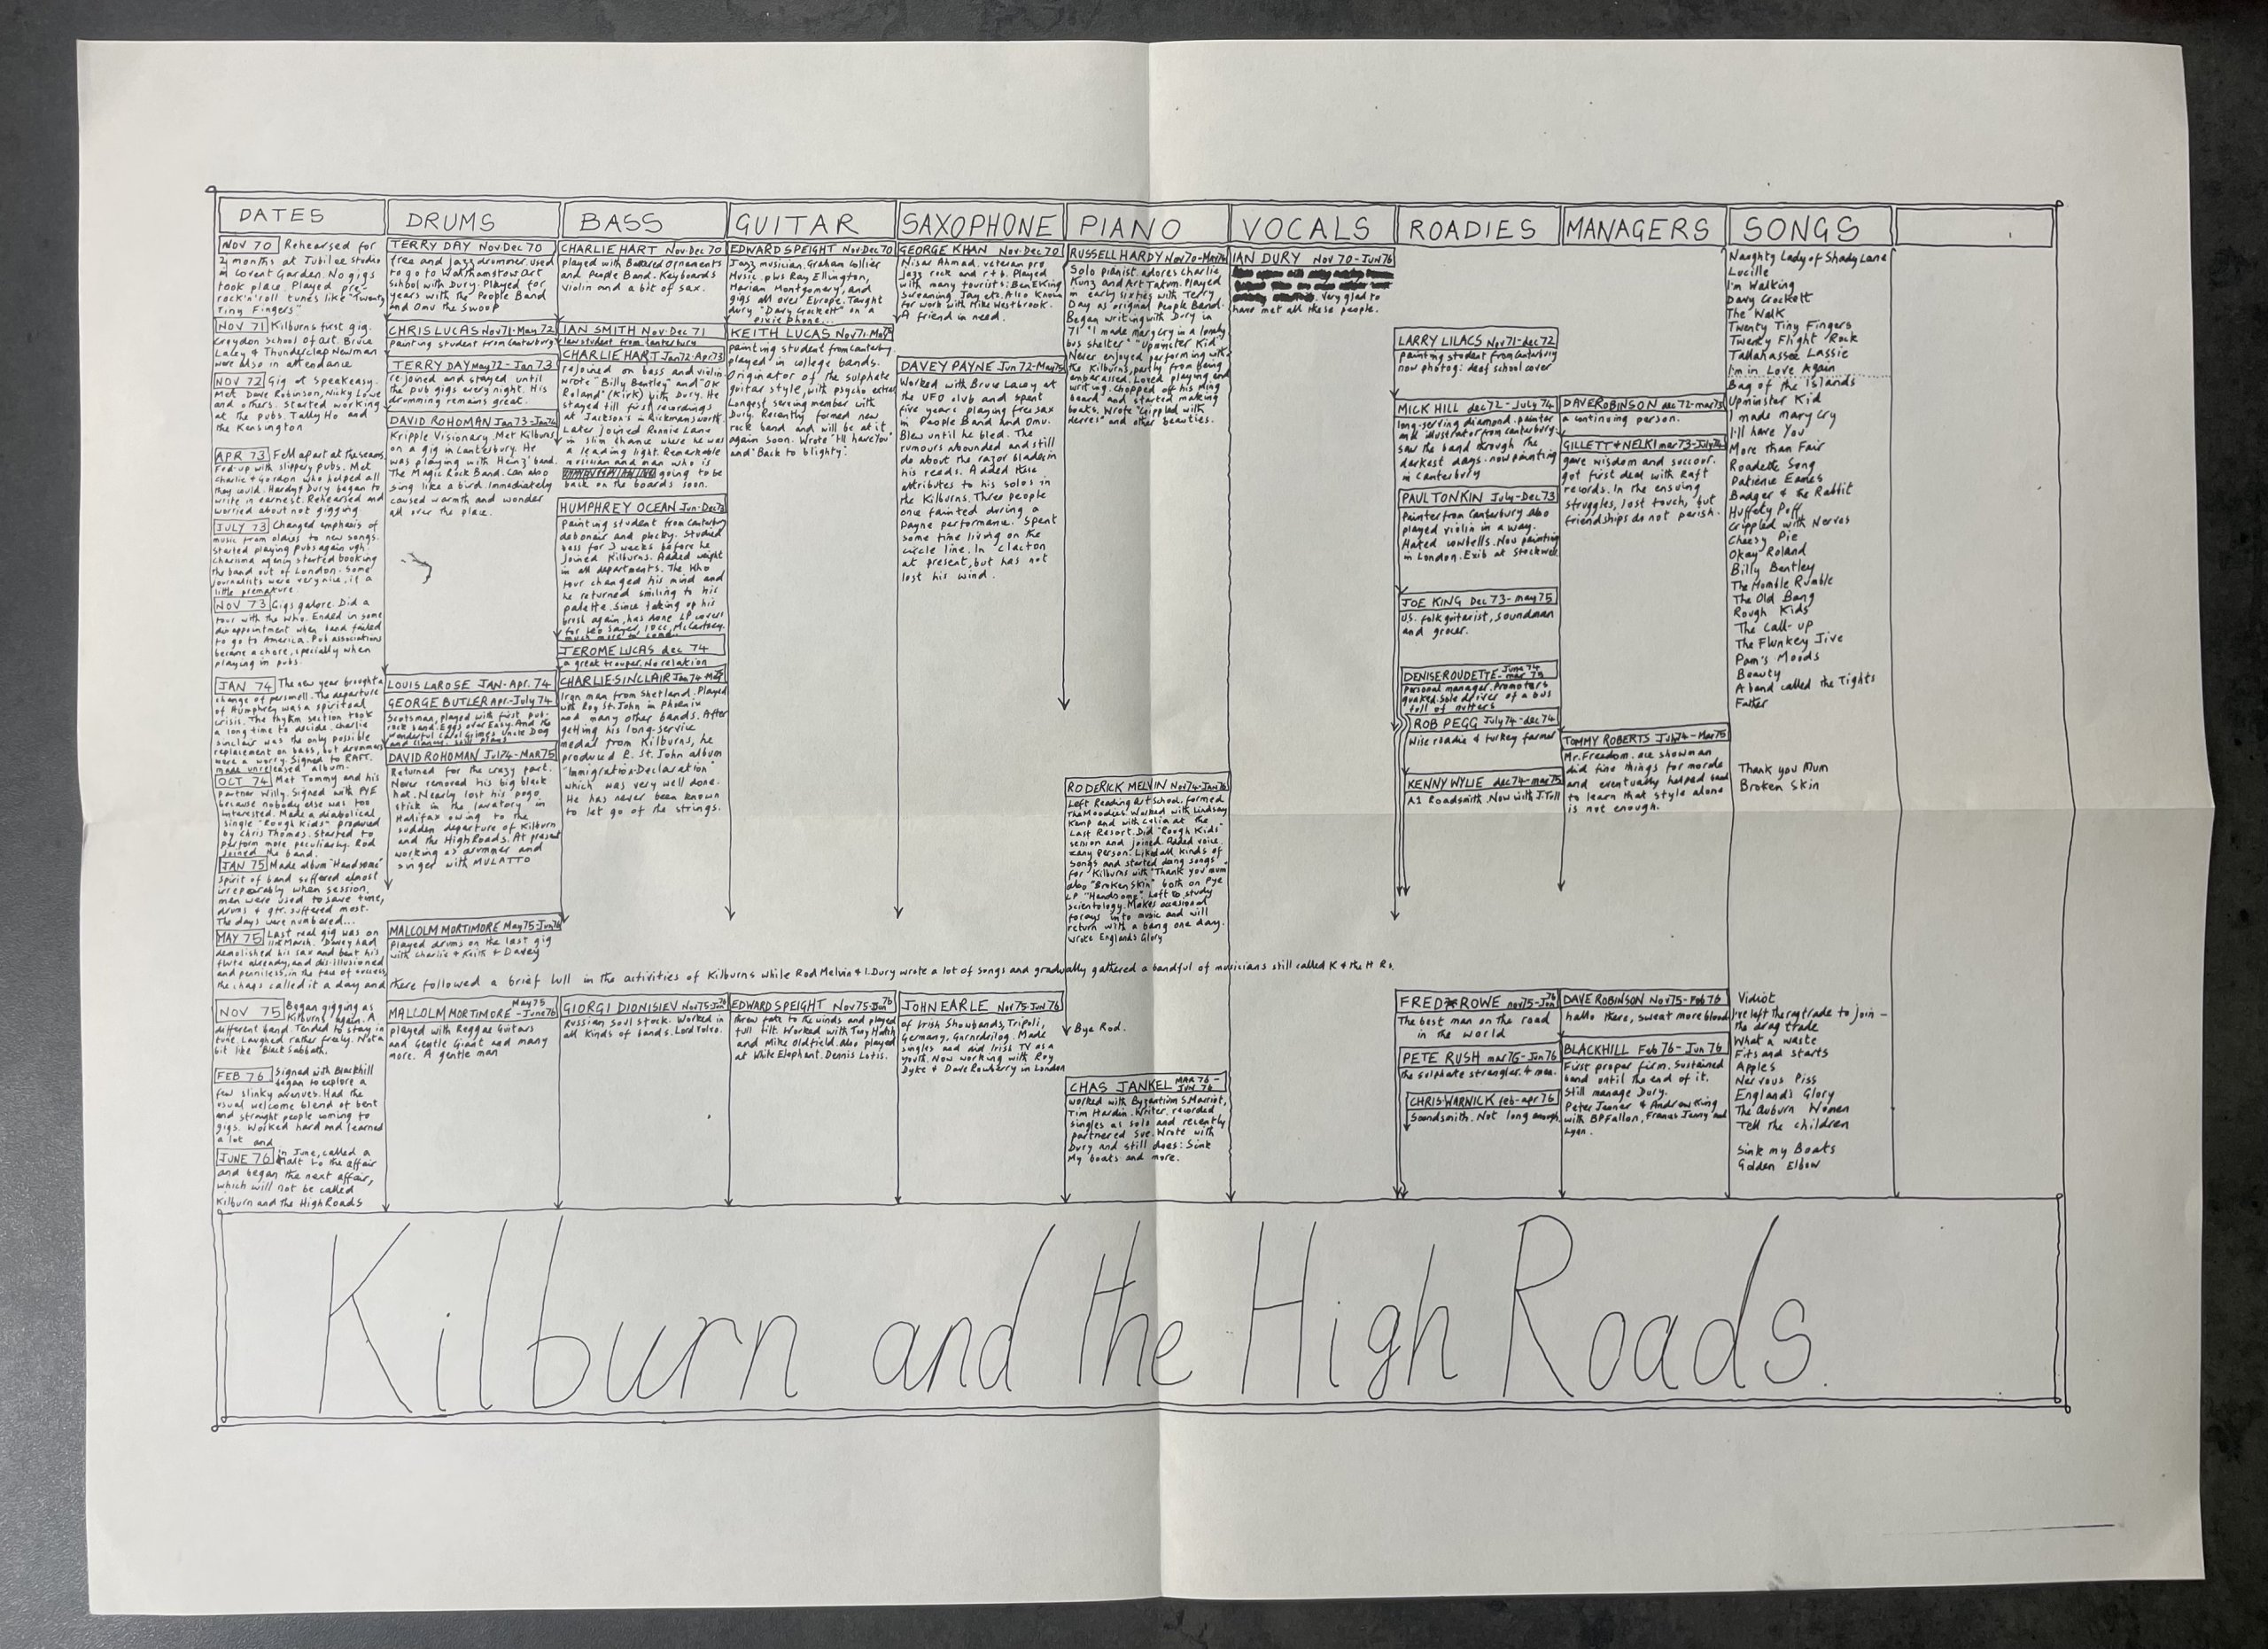 DATES
NOV 70 Rehearsed for
2 months at Jubilee Studio
in Covent Garden. No gigs
took place. Played pre-
rock'n'roll tunes like "Twenty
Tiny Fingers"
NOV 71 Kilburns first gig.
Croydon School of Art. Bruce
Lacey & Thunderclap Newman
were also in attendance
NOV 72 Gig at Speakeasy.
Met Dave Robinson, Nicky Lowe
and others. Started working
at the pubs. Tally Ho and
the Kensington
APR 73 Fell apart at the seams
Fed-up with slippery pubs. Met
Charlie & Gordon who helped all
they could. Hardy & Dury began to
write in earnest. Rehearsed and
worried about not gigging
JULY 73 Changed emphasis of
music from oldies to new songs.
Started playing pubs again ugh!
Charisma agency started booking
the band out of London. Some
journalists were very nice, if a
little premature.
NOV 73 Gigs galore. Did a
tour with the Who. Ended in some
disappointment when band failed
to go to America. Pub associations
became a chore, specially when
playing in pubs.
JAN 74 The new year brought a
change of personell. The departure
of Humphrey was a spiritual
crisis. The rhythm section took
a long time to decide. Charlie
Sinclair was the only possible
replacement on bass, but drummers
were a worry. Signed to RAFT.
made unreleased album.
OCT 74 Met Tommy and his
partner Willy. Signed with PYE
because nobody else was too
interested. Made a diabolical
single "Rough Kids" produced
by Chris Thomas. Started to
perform more peculiarly. Rod
joined the band.
JAN 75 Made album "Handsome"
Spirit of band suffered almost
irreperably when session
men were used to save time,
drums & gtr. suffered most.
The days were numbered...
MAY 75 Last real gig was on
March. Davey had
demolished his sax and bent his
flute already, and disillusioned
and penniless, in the face of success
the chaps called it a day and there followed a brief lull in the activities of Kilburns while Rod Melvin & I. Dury wrote a lot of songs and gradually gathered a bandful of musicians still called K & the H Rs.
NOV 75 Began gigging as
Kilburns again. A
different band. Tended to stay in
tune. Laughed rather freely. Not a
bit like 'Black Sabbath.
FEB 76 Signed with Blackhill
began to explore a
few slinky avenues. Had the
usual welcome blend of bent
and straight people coming to
gigs. Worked hard and learned
a lot and
JUNE 76 in June, called a
halt to the affair
and began the next affair,
which will not be called
Kilburn and the High Roads
DRUMS
TERRY DAY Nov-Dec 70
free and jazz drummer. used
to go to Walthamstow Art
school with Dury. Played for
years with the People Band
and Omu the Swoop
CHRIS LUCAS Nov 71-May 72
painting student from Canterbury
TERRY DAY May 72-Jan 73
rejoined and stayed until
the pub gigs every night. His
drumming remains great.
DAVID ROHOMAN Jan 73-Jan 74
Kripple Visionary. Met Kilburns
on a gig in Canterbury. He
was playing with Heinz' band.
The Magic Rock Band. Can also
sing like a bird. Immediately
caused warmth and wonder
all over the place.
LOUIS LAROSE JAN-Apr. 74
GEORGE BUTLER Apr-July 74
Scotsman, played with first pub-
rock band. Eggs over Easy. And the
wonderful Carol Grimes Uncle Dog
and Clancy. still plays
DAVID ROHOMAN Jul 74-MAR 75
Returned for the crazy part.
Never removed his big black
hat. Nearly lost his pogo
stick in the lavatory in
Halifax owing to the
sudden departure of Kilburn
and the High Roads. At present
working as drummer and
singer with MULATTO
MALCOLM MORTIMORE May 75-Jun 76
Played drums on the last gig
with Charlie & Keith & Davey
MALCOLM MORTIMORE May 75 -June 76
played with Reggae Guitars
and Gentle Giant and many
more. A gentle man
BASS
CHARLIE HART Nov-Dec 70
played with Battered Ornaments
and People Band. Keyboards
violin and a bit of sax.
IAN SMITH Nov-Dec 71
law student from Canterbury
CHARLIE HART Jan 72-Apr 73
rejoined on bass and violin.
wrote "Billy Bentley" and "OK
Roland" (Kirk) with Dury. He
stayed till first recordings
at Jackson's in Rickmansworth.
Later joined Ronnie Lane
in Slim Chance where he was
a leading light. Remarkable
musician and man who is
going to be
back on the boards soon.
HUMPHREY OCEAN Jun-Dec 73
Painting student from Canterbury
debonair and plucky. Studied
bass for 3 weeks before he
joined Kilburns. Added weight
in all departments. The Who
tour changed his mind and
he returned smiling to his
palette. Since taking up his
brush again, has done LP covers
for Leo Sayer, 10cc, McCartney.
much more to come.
JEROME LUCAS dec 74
a great trouper. No relation
CHARLIE SINCLAIR Jan 74-Mar 75
Iron man from Shetland. Played
with Roy St. John in Phoenix
and many other bands. After
getting his long-service
medal from Kilburns, he
produced R. St. John album
"Immigration Declaration"
which was very well done.
He has never been known
to let go of the strings.
GIORGI DIONISIEV Nov 75-Jun 76
Russian soul stock. Worked in
all kinds of bands. Lord Toleo.
GUITAR
EDWARD SPEIGHT Nov-Dec 70
Jazz musician. Graham Collier
Music. plus Ray Ellington,
Marian Montgomery, and
gigs all over Europe. Taught
dury "Davy Crockett" on a
pixie phone...
KEITH LUCAS Nov 71-Mar 75
painting student from Canterbury
played in college bands.
Originator of the sulphate
guitar style, with psycho extras
Longest serving member with
Dury. Recently formed new
rock band and will be at it
again soon. Wrote "I'll have You"
and "Back to blighty".
EDWARD SPEIGHT Nov 75-Jun 76
threw fate to the winds and played
full tilt. Worked with Tony Hatch
and Mike Oldfield. also played
at White Elephant. Dennis Lotis.
SAXOPHONE
GEORGE KHAN Nov-Dec 70
Nisar Ahmad. veteran pro
Jazz rock and r+b. Played
with many tourists: Ben E King
Screaming Jay etc. Also known
for work with Mike Westbrook.
A friend in need.
DAVEY PAYNE Jun 72-May 75
Worked with Bruce Lacey at
the UFO club and spent
five years playing free sax
in People Band and Omu.
Blew until he bled. The
rumours abounded and still
do about the razor blades in
his reeds. Added these
attributes to his solos in
the Kilburns. Three people
once fainted during a
Payne performance. Spent
some time living on the
circle line. In Clacton
at present, but has not
lost his wind.
JOHN EARLE Nov 75-Jun 76
of Irish Showbands, Tripoli,
Germany, Gurnedrilog. Made
singles and did Irish TV as a
youth. Now working with Roy
Dyke & Dave Rowberry in London
PIANO
RUSSELL HARDY Nov 70-May 74
Solo pianist. adores Charlie
Kunz and Art Tatum. Played
in early sixties with Terry
Day as original People Band.
Began writing with Dury in
71 "I made mary cry in a lonely
bus shelter" "Upminster Kid"
Never enjoyed performing with
the Kilburns, partly from being
embarassed. Loved playing and
writing. Chopped off his Ming
beard and started making
boats. Wrote "Crippled with
Nerves" and other beauties.
RODERICK MELVIN Nov 74-Jan 76
Left Reading Art school. formed
The Moodies. Worked with Lindsay
Kemp and with Celia at the
Last Resort. Did "Rough Kids"
session and joined. Added voice.
zany person. Liked all kinds of
songs and started doing songs
for Kilburns with "Thank you mum"
also "Broken Skin" both on Pye
LP "Handsome". Left to study
scientology. Makes occasional
forays into music and will
return with a bang one day.
wrote Englands Glory
Bye Rod.
CHAS JANKEL MAR 76 - JUN 76
worked with Byzantium S Marriot,
Tim Hardin. Writer, recorded
singles as solo and recently
partnered Sue. Wrote with
Dury and still does: Sink
My boats and more.
VOCALS
IAN DURY Nov 70-Jun 76
very glad to
have met all these people.
ROADIES
LARRY LILACS Nov 71-dec 72
painting student from Canterbury
now photog: deaf school cover
MICK HILL dec 72-July 74
long-serving diamond. painter
and illustrator from Canterbury.
saw the band through the
darkest days. now painting
in Canterbury
PAUL TONKIN July-Dec 73
Painter from Canterbury also
played violin in a way.
Hated cowbells. Now painting
in London. Exib at Stockwell
JOE KING Dec 73-may 75
U.S. folk guitarist, soundman
and grocer.
DENISE ROUDETTE June 74 - mar 75
personal manager. Promoters
quaked. Sole driver of a bus
full of nutters
ROB PEGG July 74-dec 74
Wise roadie & turkey farmer
KENNY WYLIE dec 74-mar 75
A1 Roadsmith. Now with J. Tull
FRED ROWE nov 75-Jun 76
The best man on the road
in the world
PETE RUSH mar 76-Jun 76
the sulphate strangler. & men.
CHRIS WARNICK feb-apr 76
Soundsmith. Not long enough
MANAGERS
DAVE ROBINSON dec 72-mar 73
a continuing person.
GILLETT & NELKI mar 73-July 74
gave wisdom and succour.
got first deal with Raft
records. In the ensuing
struggles, lost touch, but
friendships do not perish.
TOMMY ROBERTS July 74-Mar 75
Mr. Freedom. ace showman
did fine things for morale
and eventually helped band
to learn that style alone
is not enough.
DAVE ROBINSON Nov 75-Feb 76
hallo there, sweat more blood
BLACKHILL Feb 76-Jun 76
First proper firm. Sustained
band until the end of it.
Still manage Dury.
Peter Jenner & Andrew King
with BP Fallon, Frances Jenny and
Lyon.
SONGS
Naughty Lady of Shady Lane
Lucille
I'm Walking
Davy Crockett
The Walk
Twenty Tiny Fingers
Twenty Flight Rock
Tallahassee Lassie
I'm in Love Again
Bag of the Islands
Upminster Kid
I made mary Cry
I'll have You
More than Fair
Roadette Song
Patience Eames
Badger & the Rabbit
Huffety Puff
Crippled with Nerves
Cheesy Pie
Okay Roland
Billy Bentley
The Humble Rumble
The Old Bang
Rough Kids
The Call-up
The Flunkey Jive
Pam's Moods
Beauty
A band called the Tights
Father
Thank you Mum
Broken Skin
Vidiot
I've left the rag trade to join -
the drag trade
What a waste
Fits and starts
Apples
Nervous Piss
England's Glory
The Auburn Women
Tell the children
Sink my Boats
Golden Elbow
Kilburn and the High Roads.